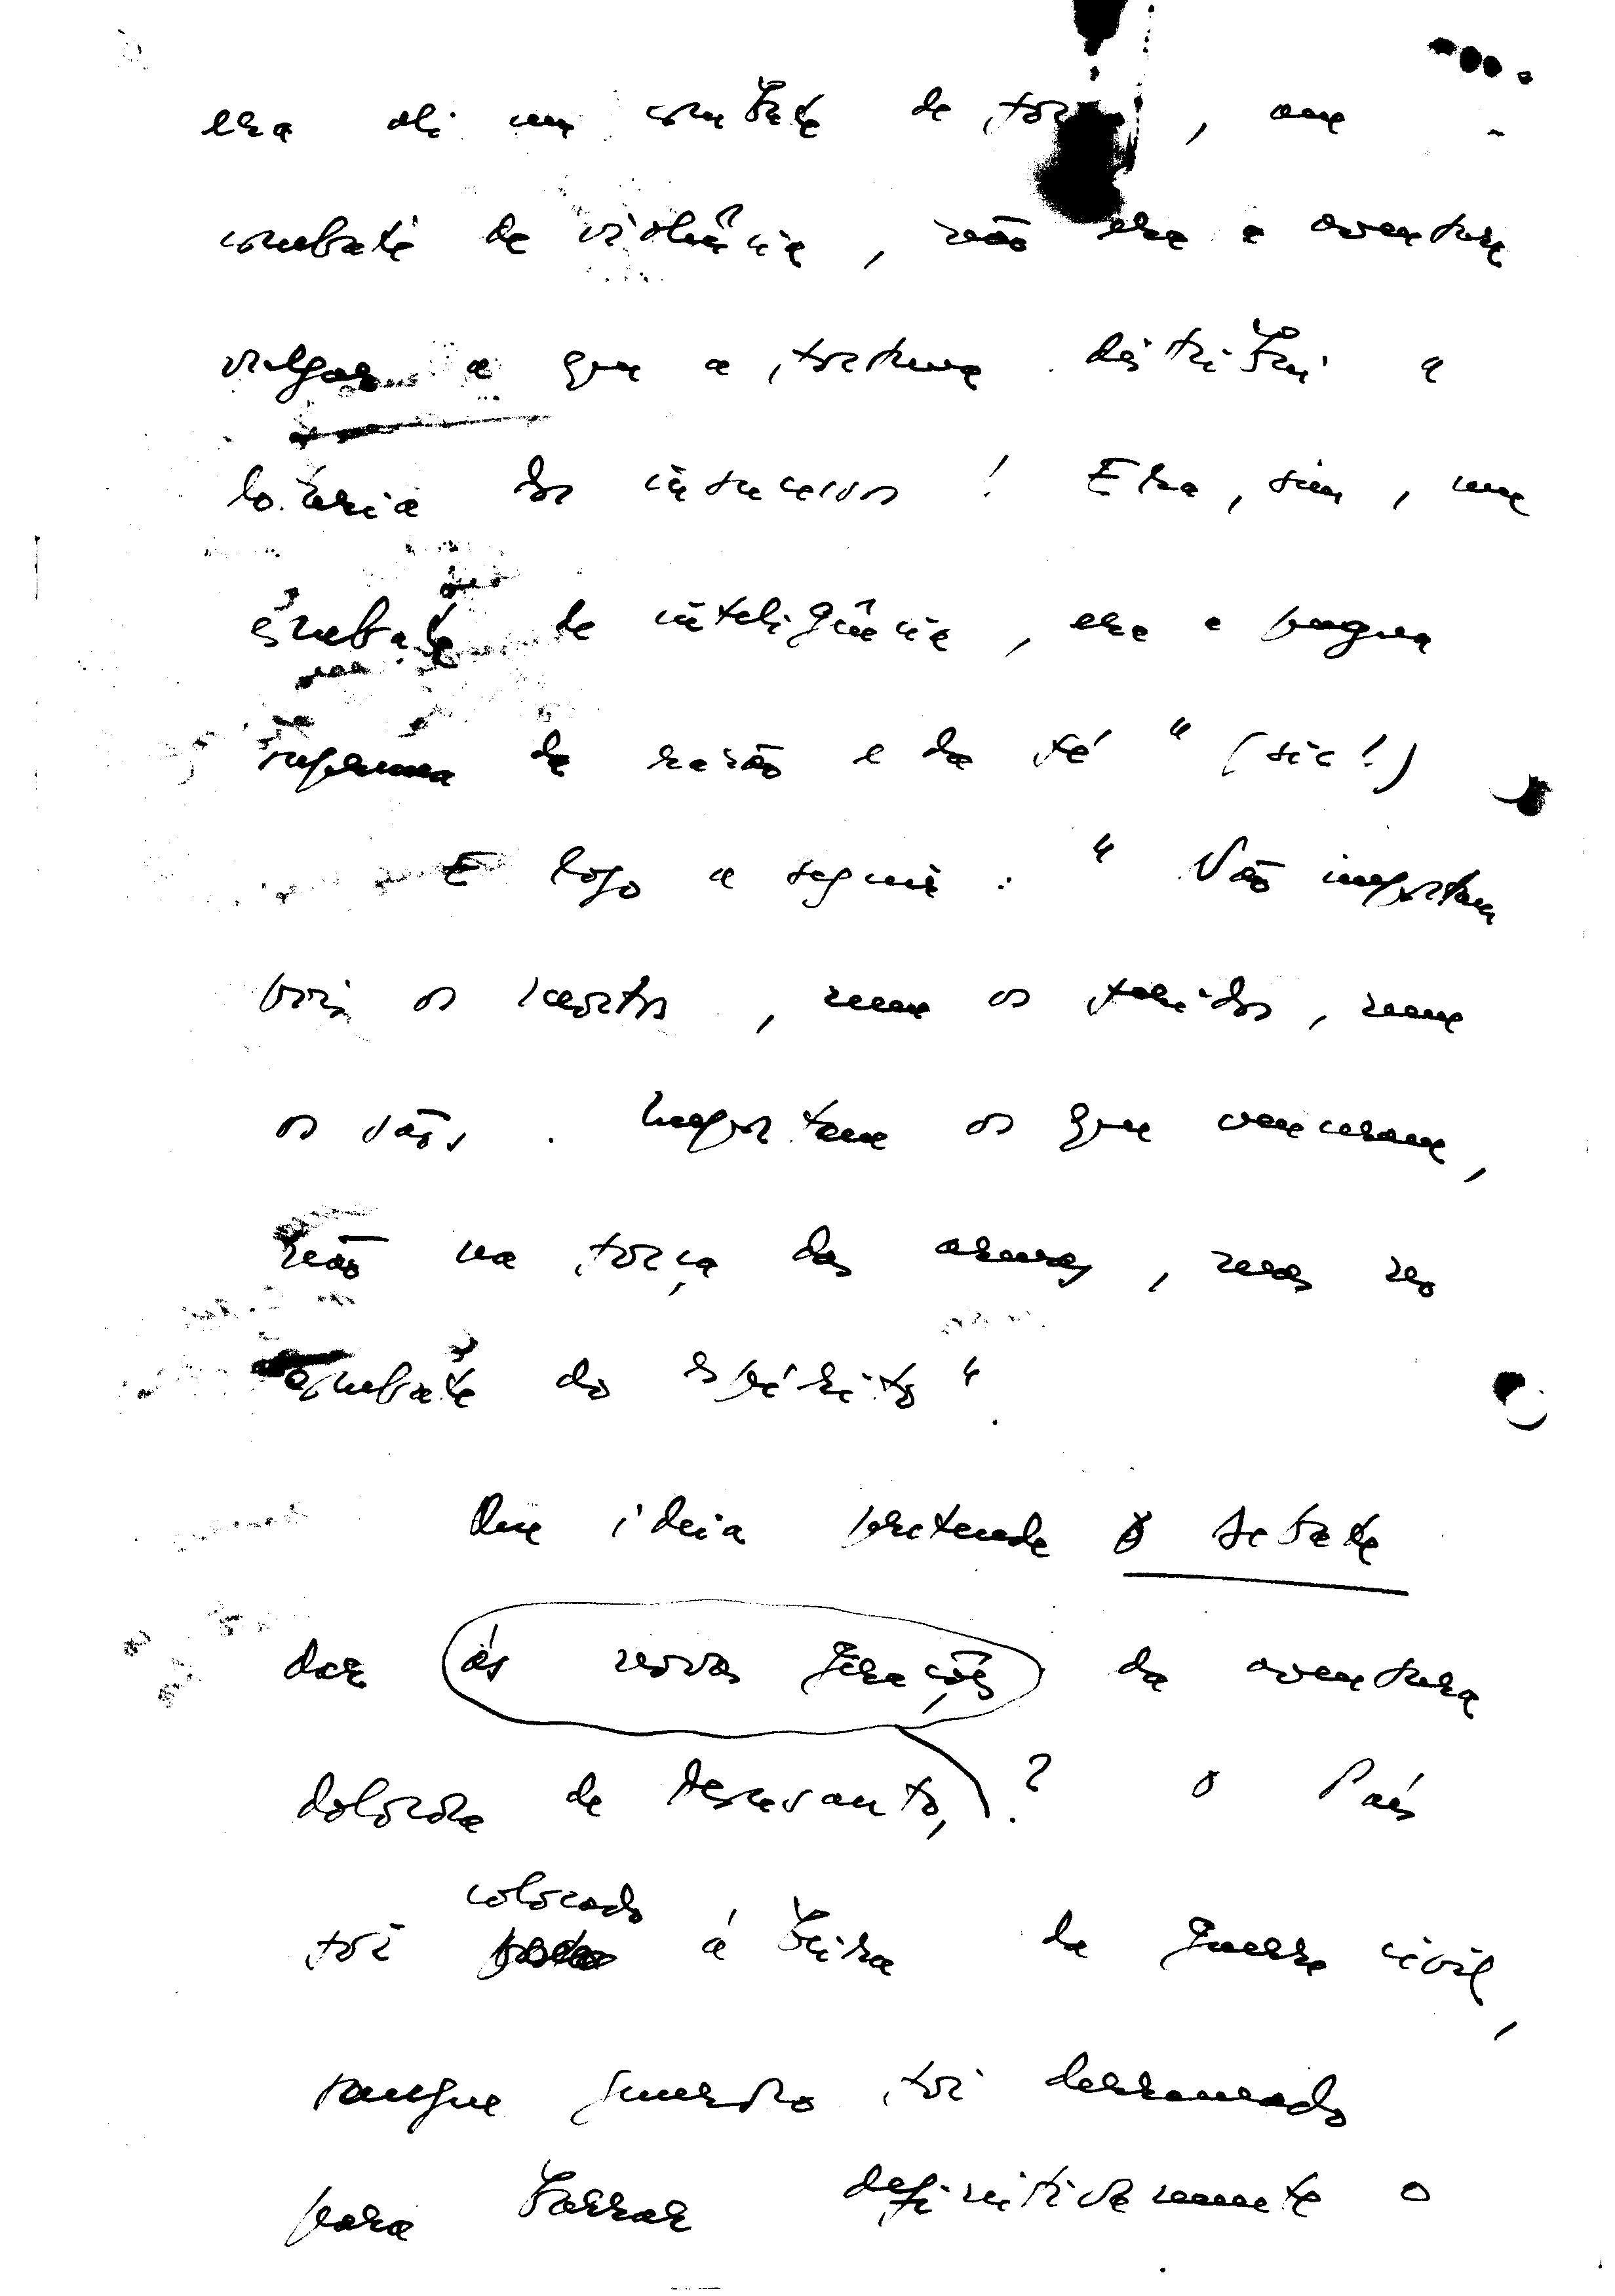 era ali um combate de força, um
combate de violência, não era a aventura
vulgar a que a fortuna distribui a
lotéria dos insucessos! Era, sim, um
combate de inteligência, era a pugna
suprema da razão e da fé" (sic!)
E logo a seguir: "Não importam
pois os mortos, nem os feridos, nem
os sãos. Importam os que venceram,
não na força das armas, mas no
combate do espírito".
Que ideia pretende o Debate
dar ás novas gerações da aventura
dolorosa de Monsanto,? O País
colocado
foi á beira da guerra civil,
sangue generoso foi derramado
para barrar definitivamente o